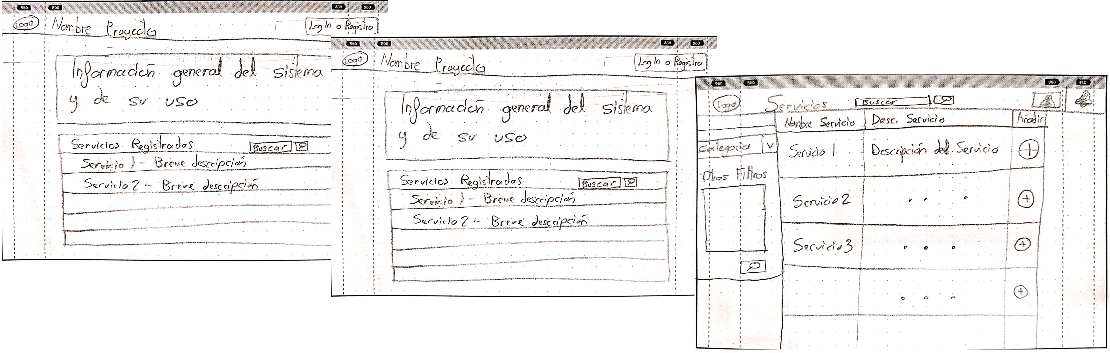 Logo Nombre Proyecto LogIn o Registro
Información general del sistema
y de su uso
Servicios Registrados Buscar
Servicio 1 - Breve descripción
Servicio 2 - Breve descripción
Logo Nombre Proyecto LogIn o Registro
Información general del sistema
y de su uso
Servicios Registrados Buscar
Servicio 1 - Breve descripción
Servicio 2 - Breve descripción
Logo Servicios Buscar
Nombre Servicio Desc. Servicio Añadir
Categoria V
Servicio 1 Descripción del Servicio +
Otros Filtros
Servicio 2 . . . +
Servicio 3 . . . +
. . . +